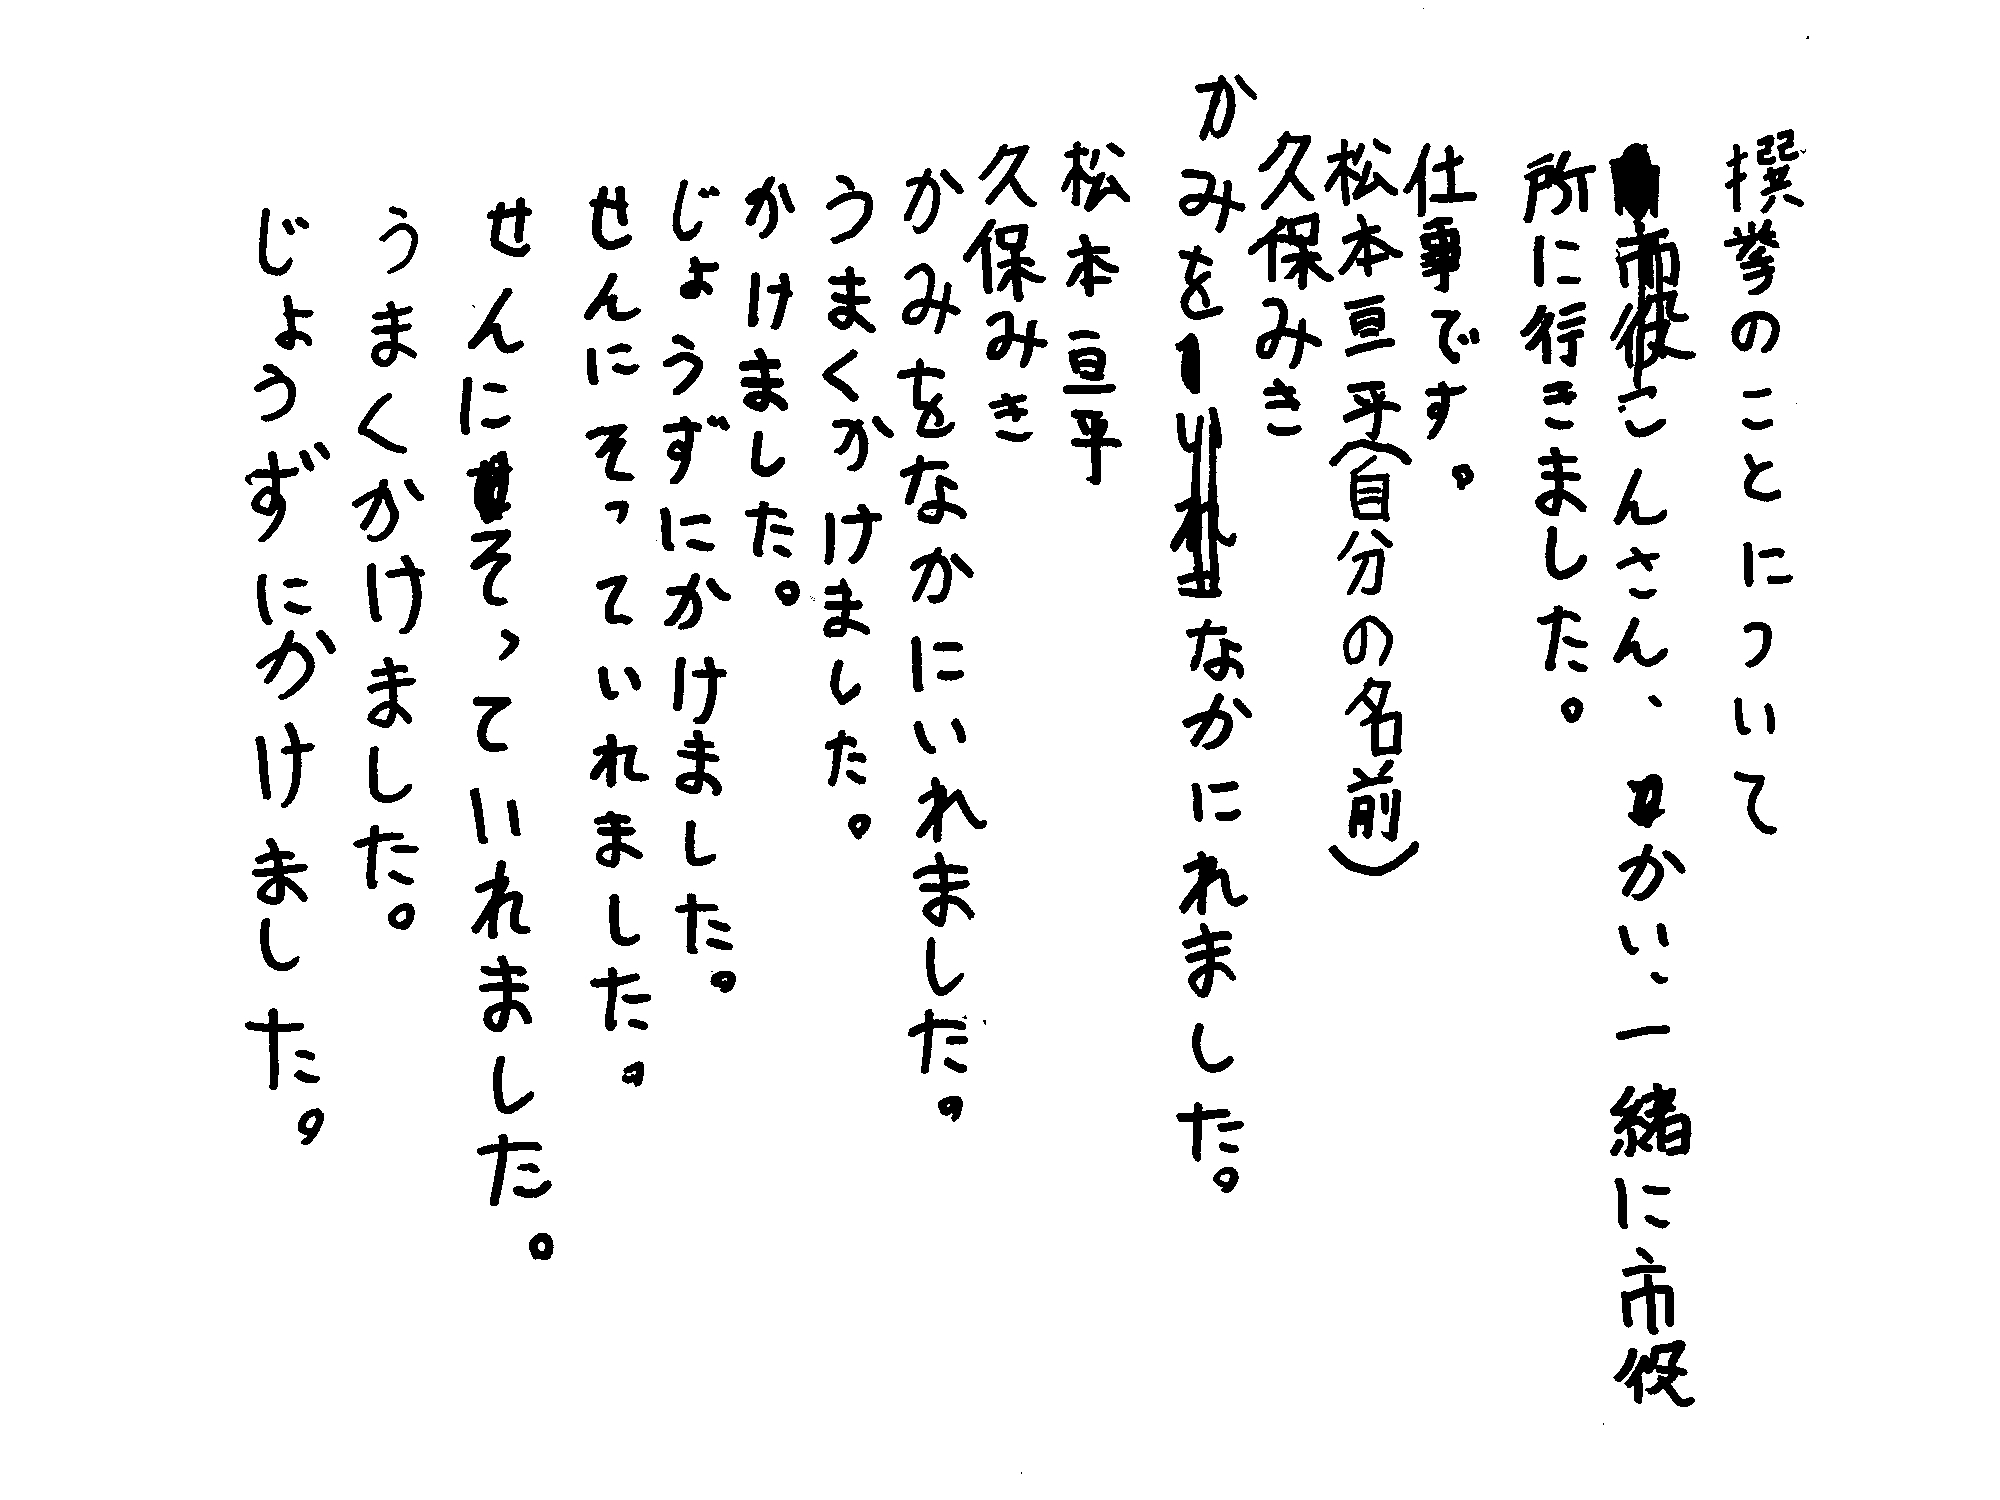 撰挙のことについて
こんさん、かい、一緒に市役
所に行きました。
仕事です。
松本亘平(自分の名前)
久保みき
かみをなかにれました。
松本亘平
久保みき
かみをなかにいれました。
うまくかけました。
かけました。
じょうずにかけました。
せんにそっていれました。
せんにそっていれました。
うまくかけました。
じょうずにかけました。